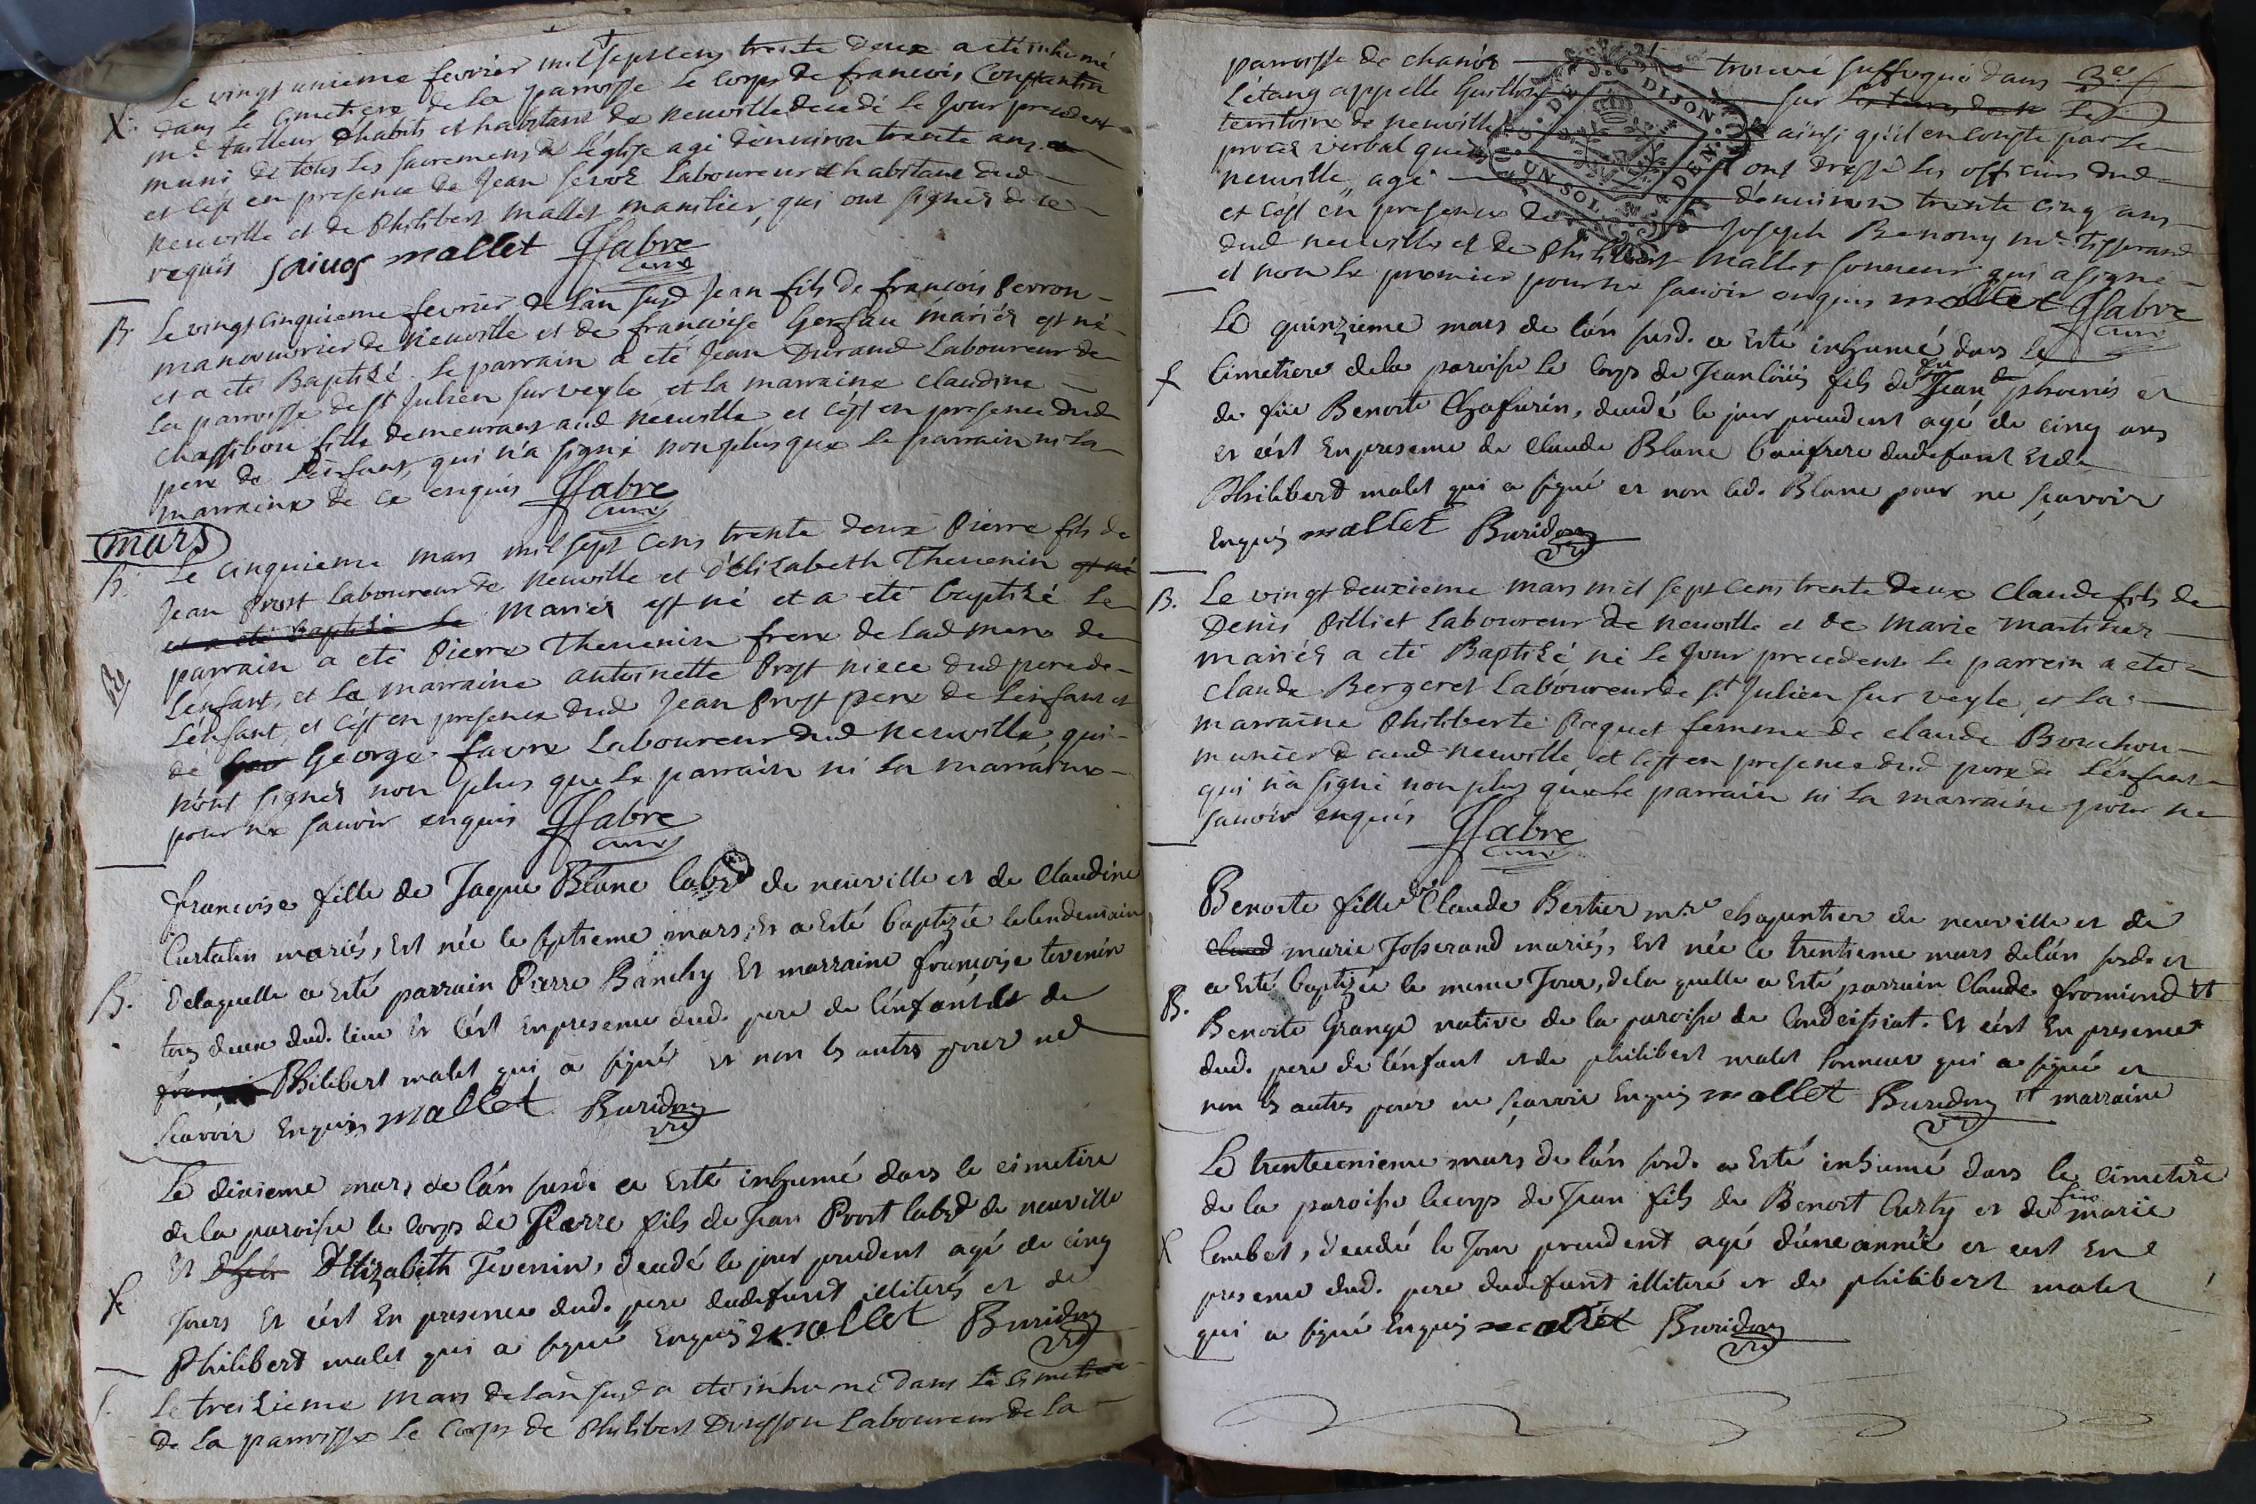 Le vingt unieme fevrier mil sept cens trente deux a eté inhumé
dans le cimetiere de la parroisse le corps de francois Constantin
X. mᵉ tailleur dhabits et habitant de neuville decedé le jour precedent
muni de tous les sacremens de l'église agé d'environ trente ans
et c'est en presence de Jean sevoz Laboureur et habitant dud
neuville et de Philibert Mallet manilier, qui ont signés de ce
requis mallet ffabre curé
B. Le vingt cinquieme fevrier de l'an susd Jean fils de francois Perron
manouvrier de Neuville et de francoise Gersau mariés est né
et a eté Baptisé. Le parrain a eté Jean Durand Laboureur de
la parroisse de st Julien sur veyle et la marraine claudine
chassibou fille demeurant aud neuville et c'est en presence dud
pere de l'enfant, qui n'a signé non plus que le parrain ni la
marraine de ce enquis ffabre curé
mars
B. Le cinquieme mars mil sept cens trente deux Pierre fils de
Jean Prost Laboureur de neuville et d'Elizabeth Thevenin est né
et a eté baptisé le mariés est né et a eté baptisé Le
parrain a eté Pierre Thevenin frere de lad mere de
l'enfant, et la marraine antoinette Prost niece dud pere de
l'enfant, et c'est en presence dud Jean Prost pere de l'enfant et
de George favre Laboureur dud neuville, qui
n'ont signés non plus que le parrain ni la marraine
pour ne sauoir enquis ffabre curé
francoise fille de Jaque Blanc labʳ de neuville et de Claudine
Curtalin mariés, Est née le septieme mars, Et a Esté baptizée le lendemain
B. delaquelle a Esté parrain Pierre Banchy Et marraine françoise tevenin
tous deux dud. lieu Et c'est En presence dud. pere de l'enfant et de
Philibert malet qui a signé et non les autres pour ne
scavoir Enquis mallet Buridon vic
Le dixieme mars de l'an susd. a Esté inhumé dans le cimetire
de la paroisse le corps de Pierre fils de Jean Prost labʳ de neuville
Et D'Elizabeth Tevenin, decedé le jour precedent agé de cinq
jours Et c'est En presence dud. pere dudefunt illiterés et de
Philibert malet qui a signé Enquis mallet Buridon vic
Le treizieme mars de l'an susd a eté inhumé dans le cimetiere
de la parroisse le corps de Philibert Duisson Laboureur de la
parroisse de chanoz trouvé suffoqué dans
l'étang appellé sur
territoire de neuville ainsi qu'il en conste par le
procez verbal que ont dressé les officiers dud
neuville, agé d'environ trente cinq ans
et c'est en presence de Joseph Benony mᵉ tisserand
dud neuville et de Philibert Mallet sonneur qui a signé
et non le premier pour ne sauoir enquis mallet ffabre curé
DIJON
UN SOL
Le quinzieme mars de l'an susd. a Esté inhumé dans le
cimetiere dela paroisse Le corps de Jean loüis fils de feu Jean phoenis et
de füe Benoite Chafurin, decedé le jour precedent agé de cinq ans
et c'est En presence de Claude Blanc beaufrere dudefunt Et de
Philibert malet qui a signé et non led. Blanc pour ne scavoir
Enquis mallet Buridon vic
B. Le vingt deuxieme mars mil sept cens trente deux Claude fils de
Denis Pilliet Laboureur de neuville et de marie martinet
mariés a eté Baptizé né le Jour precedent Le parrein a eté
Claude Bergeret Laboureur de st Julien sur veyle, et la
marraine Philiberte Poquet femme de claude Bouchou
munier aud neuville, et c'est en presence dud pere de l'enfant
qui n'a signé non plus que le parrain ni la marraine pour ne
sauoir enquis ffabre curé
Benoite fille de Claude Bertier mᵉ chapuntier de neuville et de
marie Josserand mariés, Est née le trentieme mars de l'an susd. et
a Esté baptizée le meme Jour, de la quelle a Esté parrain Claude fromiond et
B. Benoite Grange native de la paroisse de Condeissiat. Et c'est En presence
dud. pere de l'enfant et de philibert malet sonneur qui a signé et
non les autres pour ne scavoir Enquis mallet Buridon vic et marraine
Le trenteunieme mars de l'an susd. a Esté inhumé dans le cimetire
de la paroisse le corps de Jean fils de Benoit Curty et de füe marie
Combet, decedé le Jour precedent agé d'une année et c'est En
presence dud. pere dudefunt illiteré et de philibert malet
qui a signé Enquis mallet Buridon vic